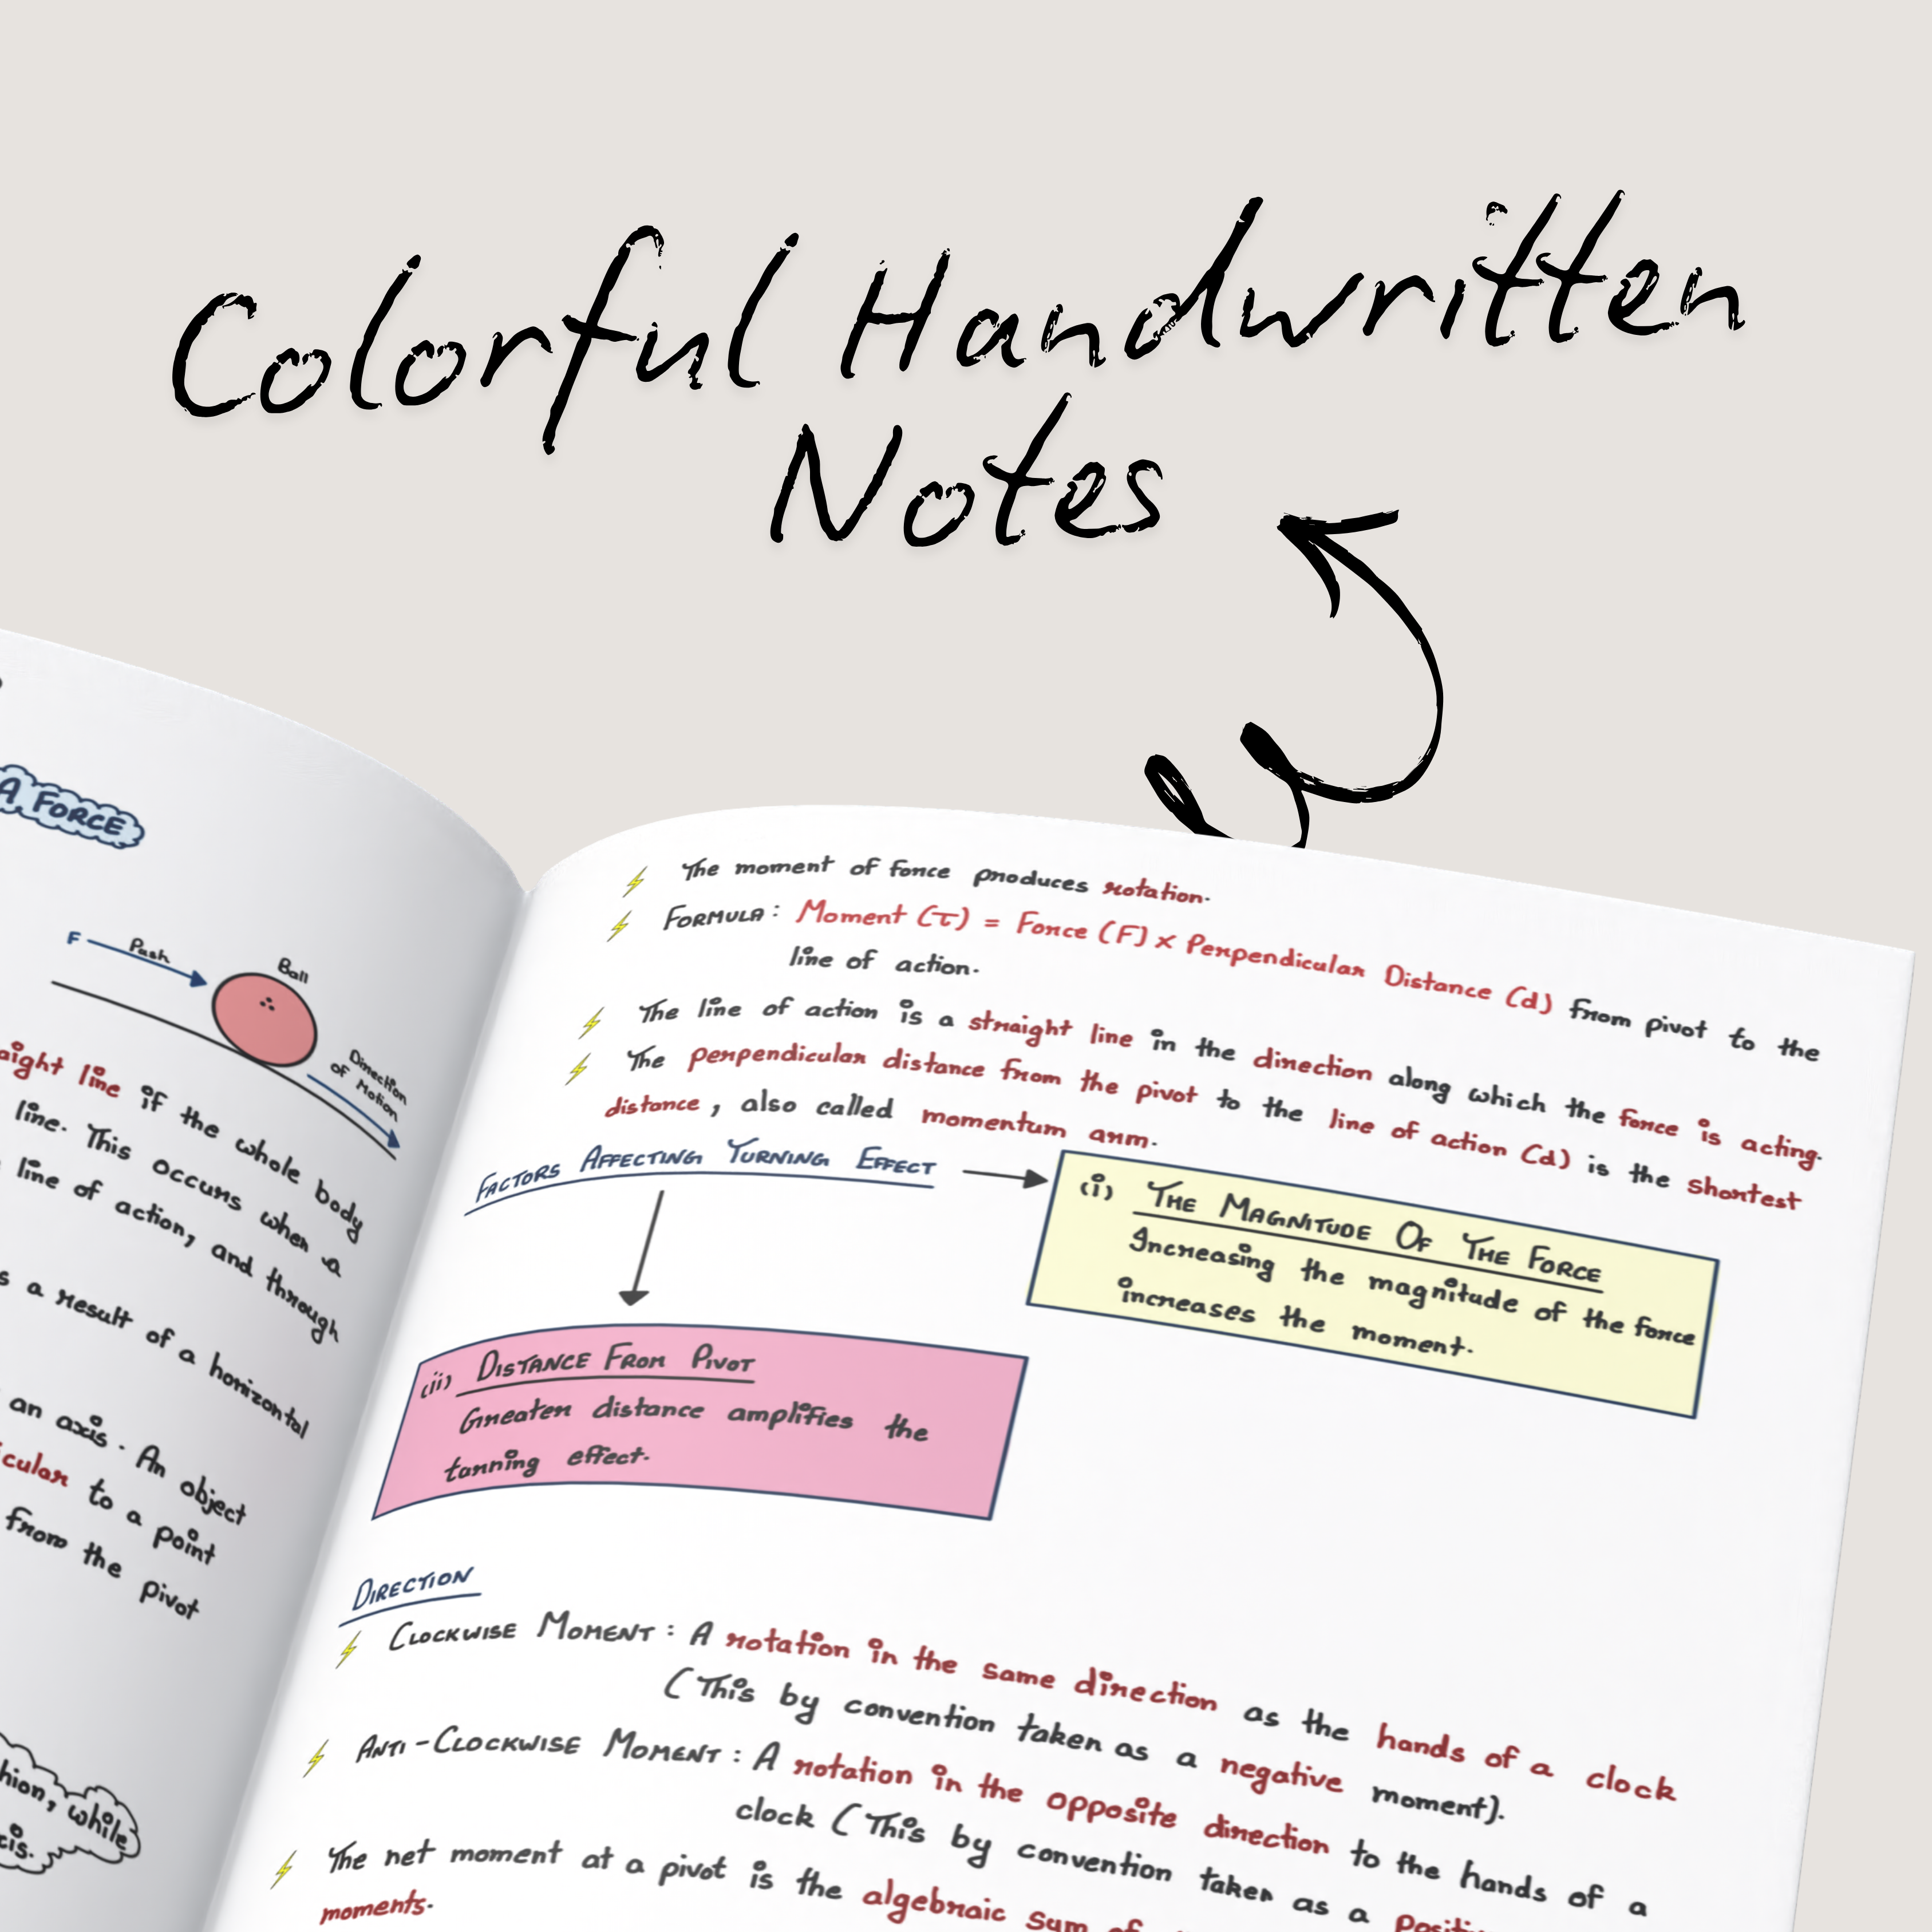 Colorful Handwritten
Notes
A FORCE
F
Push
Ball
Direction
of Motion
straight line if the whole body
line. This occurs when a
line of action, and through
a result of a horizontal
an axis. An object
to a point
from the pivot
while
The moment of force produces rotation.
FORMULA: Moment (τ) = Force (F) × Perpendicular Distance (d) from pivot to the
line of action.
The line of action is a straight line in the direction along which the force is acting.
The perpendicular distance from the pivot to the line of action (d) is the shortest
distance, also called momentum arm.
FACTORS AFFECTING TURNING EFFECT
(i) THE MAGNITUDE OF THE FORCE
Increasing the magnitude of the force
increases the moment.
(ii) DISTANCE FROM PIVOT
Greater distance amplifies the
tanning effect.
DIRECTION
CLOCKWISE MOMENT: A rotation in the same direction as the hands of a clock
(This by convention taken as a negative moment).
ANTI-CLOCKWISE MOMENT: A rotation in the opposite direction to the hands of a
clock (This by convention taken as a
The net moment at a pivot is the algebraic sum of
moments.